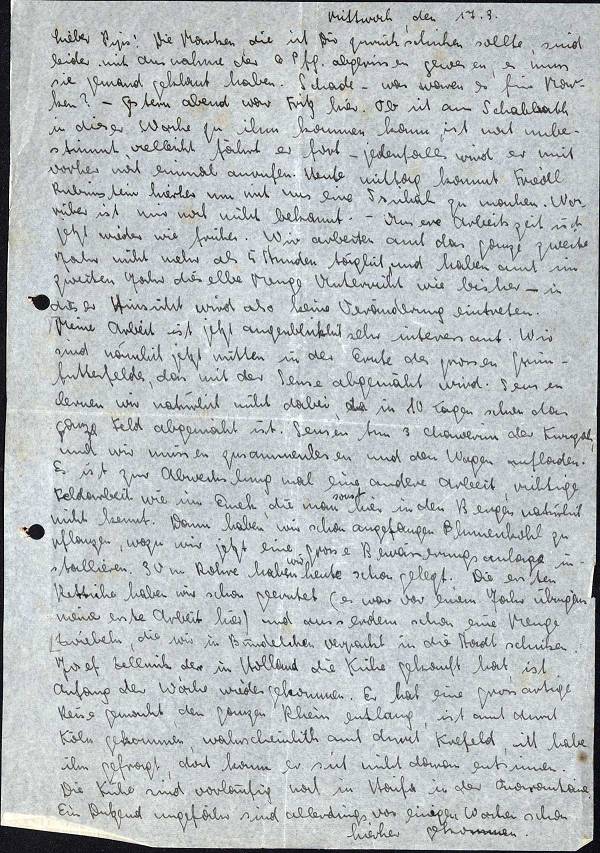 Mittwoch, den 17.3.
Lieber Pips! Die Marken die ich Dir zurückschicken sollte, sind
leider mit Ausnahme der 2 Pfg. abgerissen gewesen, es muss
sie jemand geklaut haben. Schade – was waren es für Mar-
ken? – Gestern abend war Fritz hier. Ob ich am Schabbath
in dieser Woche zu ihm kommen kann ist noch unbe-
stimmt vielleicht fährt er fort – jedenfalls wird er mich
vorher noch einmal anrufen. Heute mittag kommt Friedl
hierher um mit uns eine Ssichah zu machen. Wor-
über ist uns noch nicht bekannt. – Unsere Arbeitszeit ist
jetzt wieder wie früher. Wir arbeiten auch das ganze zweite
Jahr nicht mehr als 5 Stunden täglich und haben auch im
zweiten Jahr dieselbe Menge Unterricht wie bisher – in
dieser Hinsicht wird also keine Veränderung eintreten.
Meine Arbeit ist jetzt augenblicklich sehr interessant. Wir
sind nämlich jetzt mitten in der Ernte des grossen Grün-
futterfeldes, das mit der Sense abgemäht wird. Sensen
lernen wir natürlich nicht dabei da in 10 Tagen schon das
ganze Feld abgemäht ist. Sensen tun 3 Chawerim der Kwuzah,
und wir müssen zusammenlesen und den Wagen aufladen.
Es ist zur Abwechslung mal eine andere Arbeit, richtige
Feldarbeit wie im Emek die man sonst hier in den Bergen natürlich
nicht kennt. Dann haben wir schon angefangen Blumenkohl zu
pflanzen, wozu wir jetzt eine grosse Bewässerungsanlage in-
stallieren. 30 m Rohre haben wir heute schon gelegt. Die ersten
Rettiche haben wir schon geerntet (es war vor einem Jahr übrigens
meine erste Arbeit hier) und ausserdem schon eine Menge
Zwiebeln, die wir in Bündelchen verpackt in die Stadt schicken.
Josef der in Holland die Kühe gekauft hat, ist
Anfang der Woche wiedergekommen. Er hat eine grossartige
Reise gemacht den ganzen Rhein entlang, ist auch durch
Köln gekommen, wahrscheinlich auch durch Krefeld, ich habe
ihn gefragt, doch kann er sich nicht daran entsinnen.
Die Kühe sind vorläufig noch in Haifa in der Quarantäne.
Ein Dutzend ungefähr sind allerdings vor einigen Wochen schon
hierher gekommen.